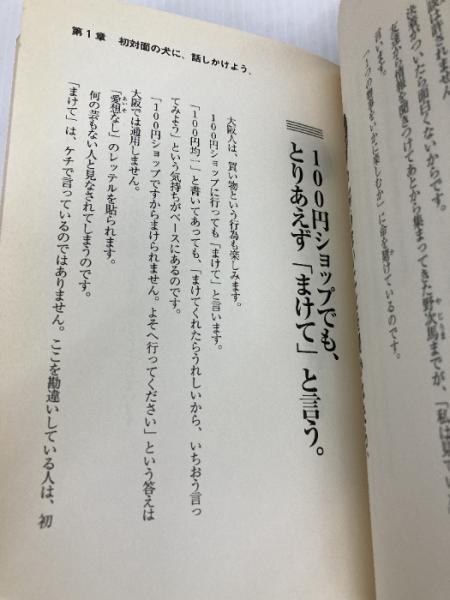 は許されません。
決着がついたら面白くないからです。
を聞きつけてあとから集まってきた野次馬までが、「私は見てい
やじうま
言います。
に命を賭けているのです。
第1章 初対面の犬に、話しかけよう。
100円ショップでも、
とりあえず「まけて」と言う。
大阪人は、買い物という行為も楽しみます。
100円ショップに行っても「まけて」と言います。
「100円均一」と書いてあっても、「まけてくれたらうれしいから、いちおう言っ
てみよう」という気持ちがベースにあるのです。
「100円ショップですからまけられません。よそへ行ってください」という答えは
大阪では通用しません。
「愛想なし」のレッテルを貼られます。
あいそ
何の芸もない人と見なされてしまうのです。
「まけて」は、ケチで言っているのではありません。ここを勘違いしている人は、初